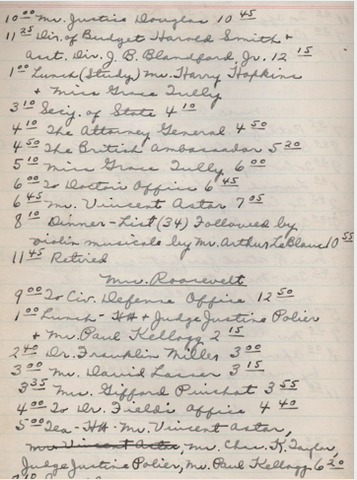 10 00 Mr. Justice Douglas 10 45
11 25 Dir. of Budget Harold Smith +
Asst. Dir. J. B. Blandford, Jr. 12 15
1 00 Lunch (Study) Mr. Harry Hopkins
+ Miss Grace Tully
3 10 Secy. of State 4 10
4 10 The Attorney General 4 50
4 50 The British Ambassador 5 20
5 10 Miss Grace Tully 6 00
6 00 To Doctor's Office 6 45
6 45 Mr. Vincent Astor 7 05
8 10 Dinner - List (34) Followed by
violin musicale by Mr. Arthur LeBlanc 10 55
11 45 Retired
Mrs. Roosevelt
9 00 To Civ. Defense Office 12 50
1 00 Lunch - HH + Judge Justine Polier
+ Mr. Paul Kellogg 2 15
2 40 Dr. Franklin Miller 3 00
3 00 Mr. David Lasser 3 15
3 35 Mrs. Gifford Pinchot 3 55
4 00 To Dr. Field's Office 4 40
5 00 Tea - HH - Mr. Vincent Astor,
Mrs Vincent Astor, Mr. Chas. K. Taylor,
Judge Justine Polier, Mr. Paul Kellogg 6 20